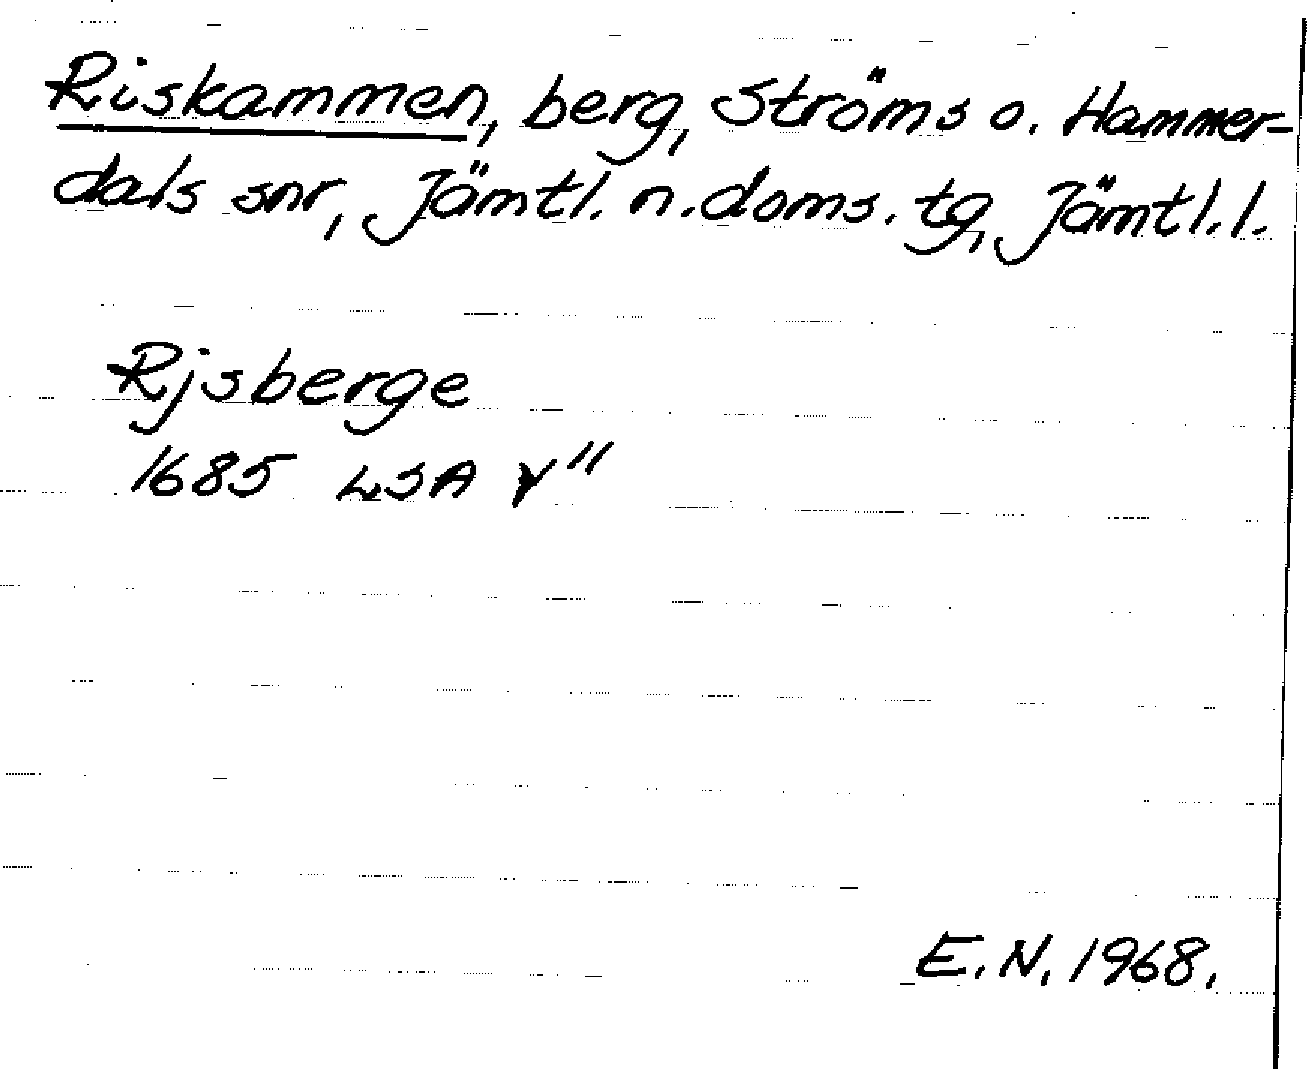 Riskammen, berg, Ströms o. Hammer-
dals snr, Jämtl. n. doms. tg, Jämtl. l.
Rjsberge
1685 LSA γ"
E.N. 1968.